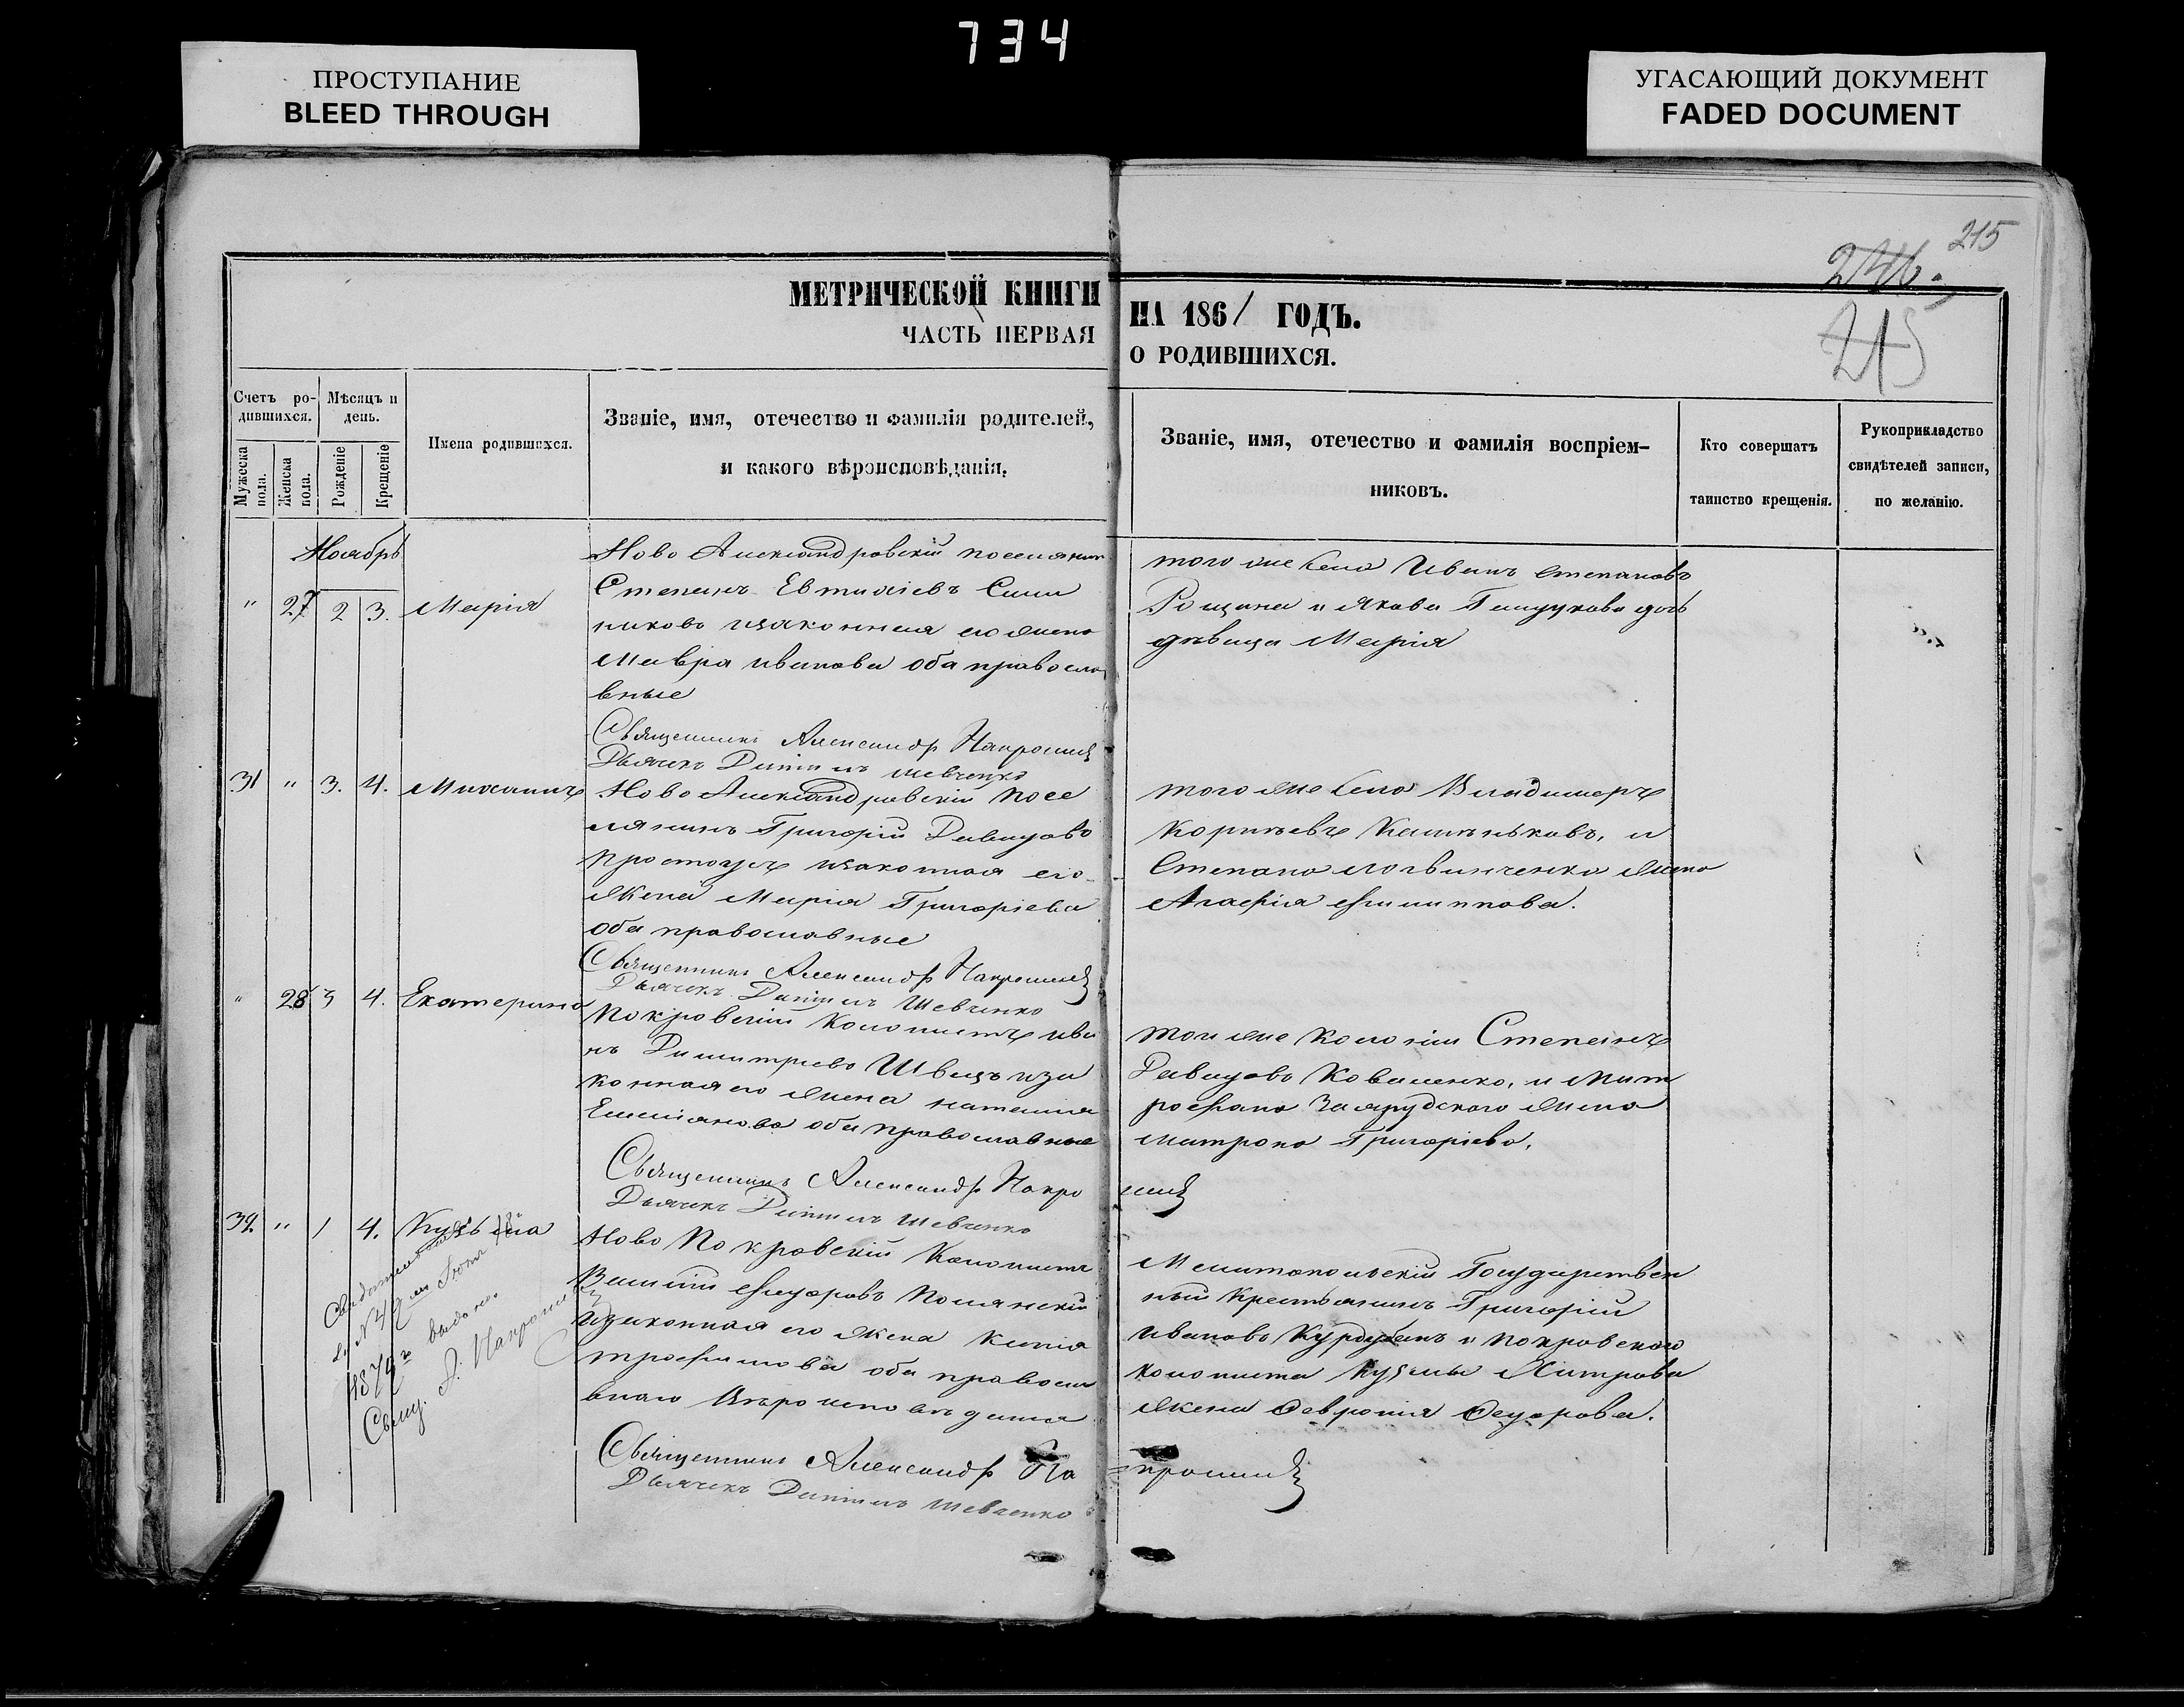 734
ПРОСТУПАНИЕ
BLEED THROUGH
УГАСАЮЩИЙ ДОКУМЕНТ
FADED DOCUMENT
215
246.
215
МЕТРИЧЕСКОЙ КНИГИ НА 1861 ГОДЪ.
ЧАСТЬ ПЕРВАЯ О РОДИВШИХСЯ.
Счетъ родившихся.
Мужеска пола.
Женска пола.
Мѣсяцъ и день.
Рожденіе
Крещеніе
Имена родившихся.
Званіе, имя, отечество и фамилія родителей,
и какого вѣроисповѣданія.
Званіе, имя, отечество и фамилія воспріем-
никовъ.
Кто совершатъ
таинство крещенія.
Рукоприкладство
свидѣтелей записи,
по желанію.
Ноябрь
" 27 2 3. Марія
Ново Александровскій поселянин
Степанъ Евтихіевъ
никовъ изаконная его жена
Мавра иванова оба правосла
вные
Священникъ Александр Напрошиц
Дьячекъ Даниилъ Шевченко
того же села Иванъ степановъ
Рощина и Якова дочь
дѣвица Марія
31 " 3. 4. Михаилъ
Ново Александровскій посе
лянинъ Григорій Давидовъ
простощъ изаконная его
жена Марія Григоріева
оба православные
Священникъ Александр Напрошиц
Дьячекъ Даниилъ Шевченко
того же села Владимеръ
Корнѣевъ и
Степана логвинченка жена
Агафія филиппова.
" 28 3 4. Екатерина
Покровскій Колонистъ ива
нъ Димитріевъ Швецъ иза
конная его жена наталия
Емелiянова оба православные
Священникъ Александр Напро шиц
Дьячекъ Даниилъ Шевченко
той же колоніи Степанъ
Давидовъ Коваленко, и Мит
рофана жена
матрона Григоріева.
32. " 1 4. Кузьма
Ново Покровскій Колонистъ
Василій федоровъ Полянскій
изаконная его жена Ксенія
трофимова оба правосла
внаго Вѣроисповѣданія
Священникъ Александр На =прошиц
Дьячекъ Даниилъ Шевченко
Мелитопольскій Государствен
ный Крестьянинъ Григорій
Ивановъ и покровскаго
колониста кузмы
жена Февронія Федорова.
1874 г выдано.
Свящ. А. Напрошиц